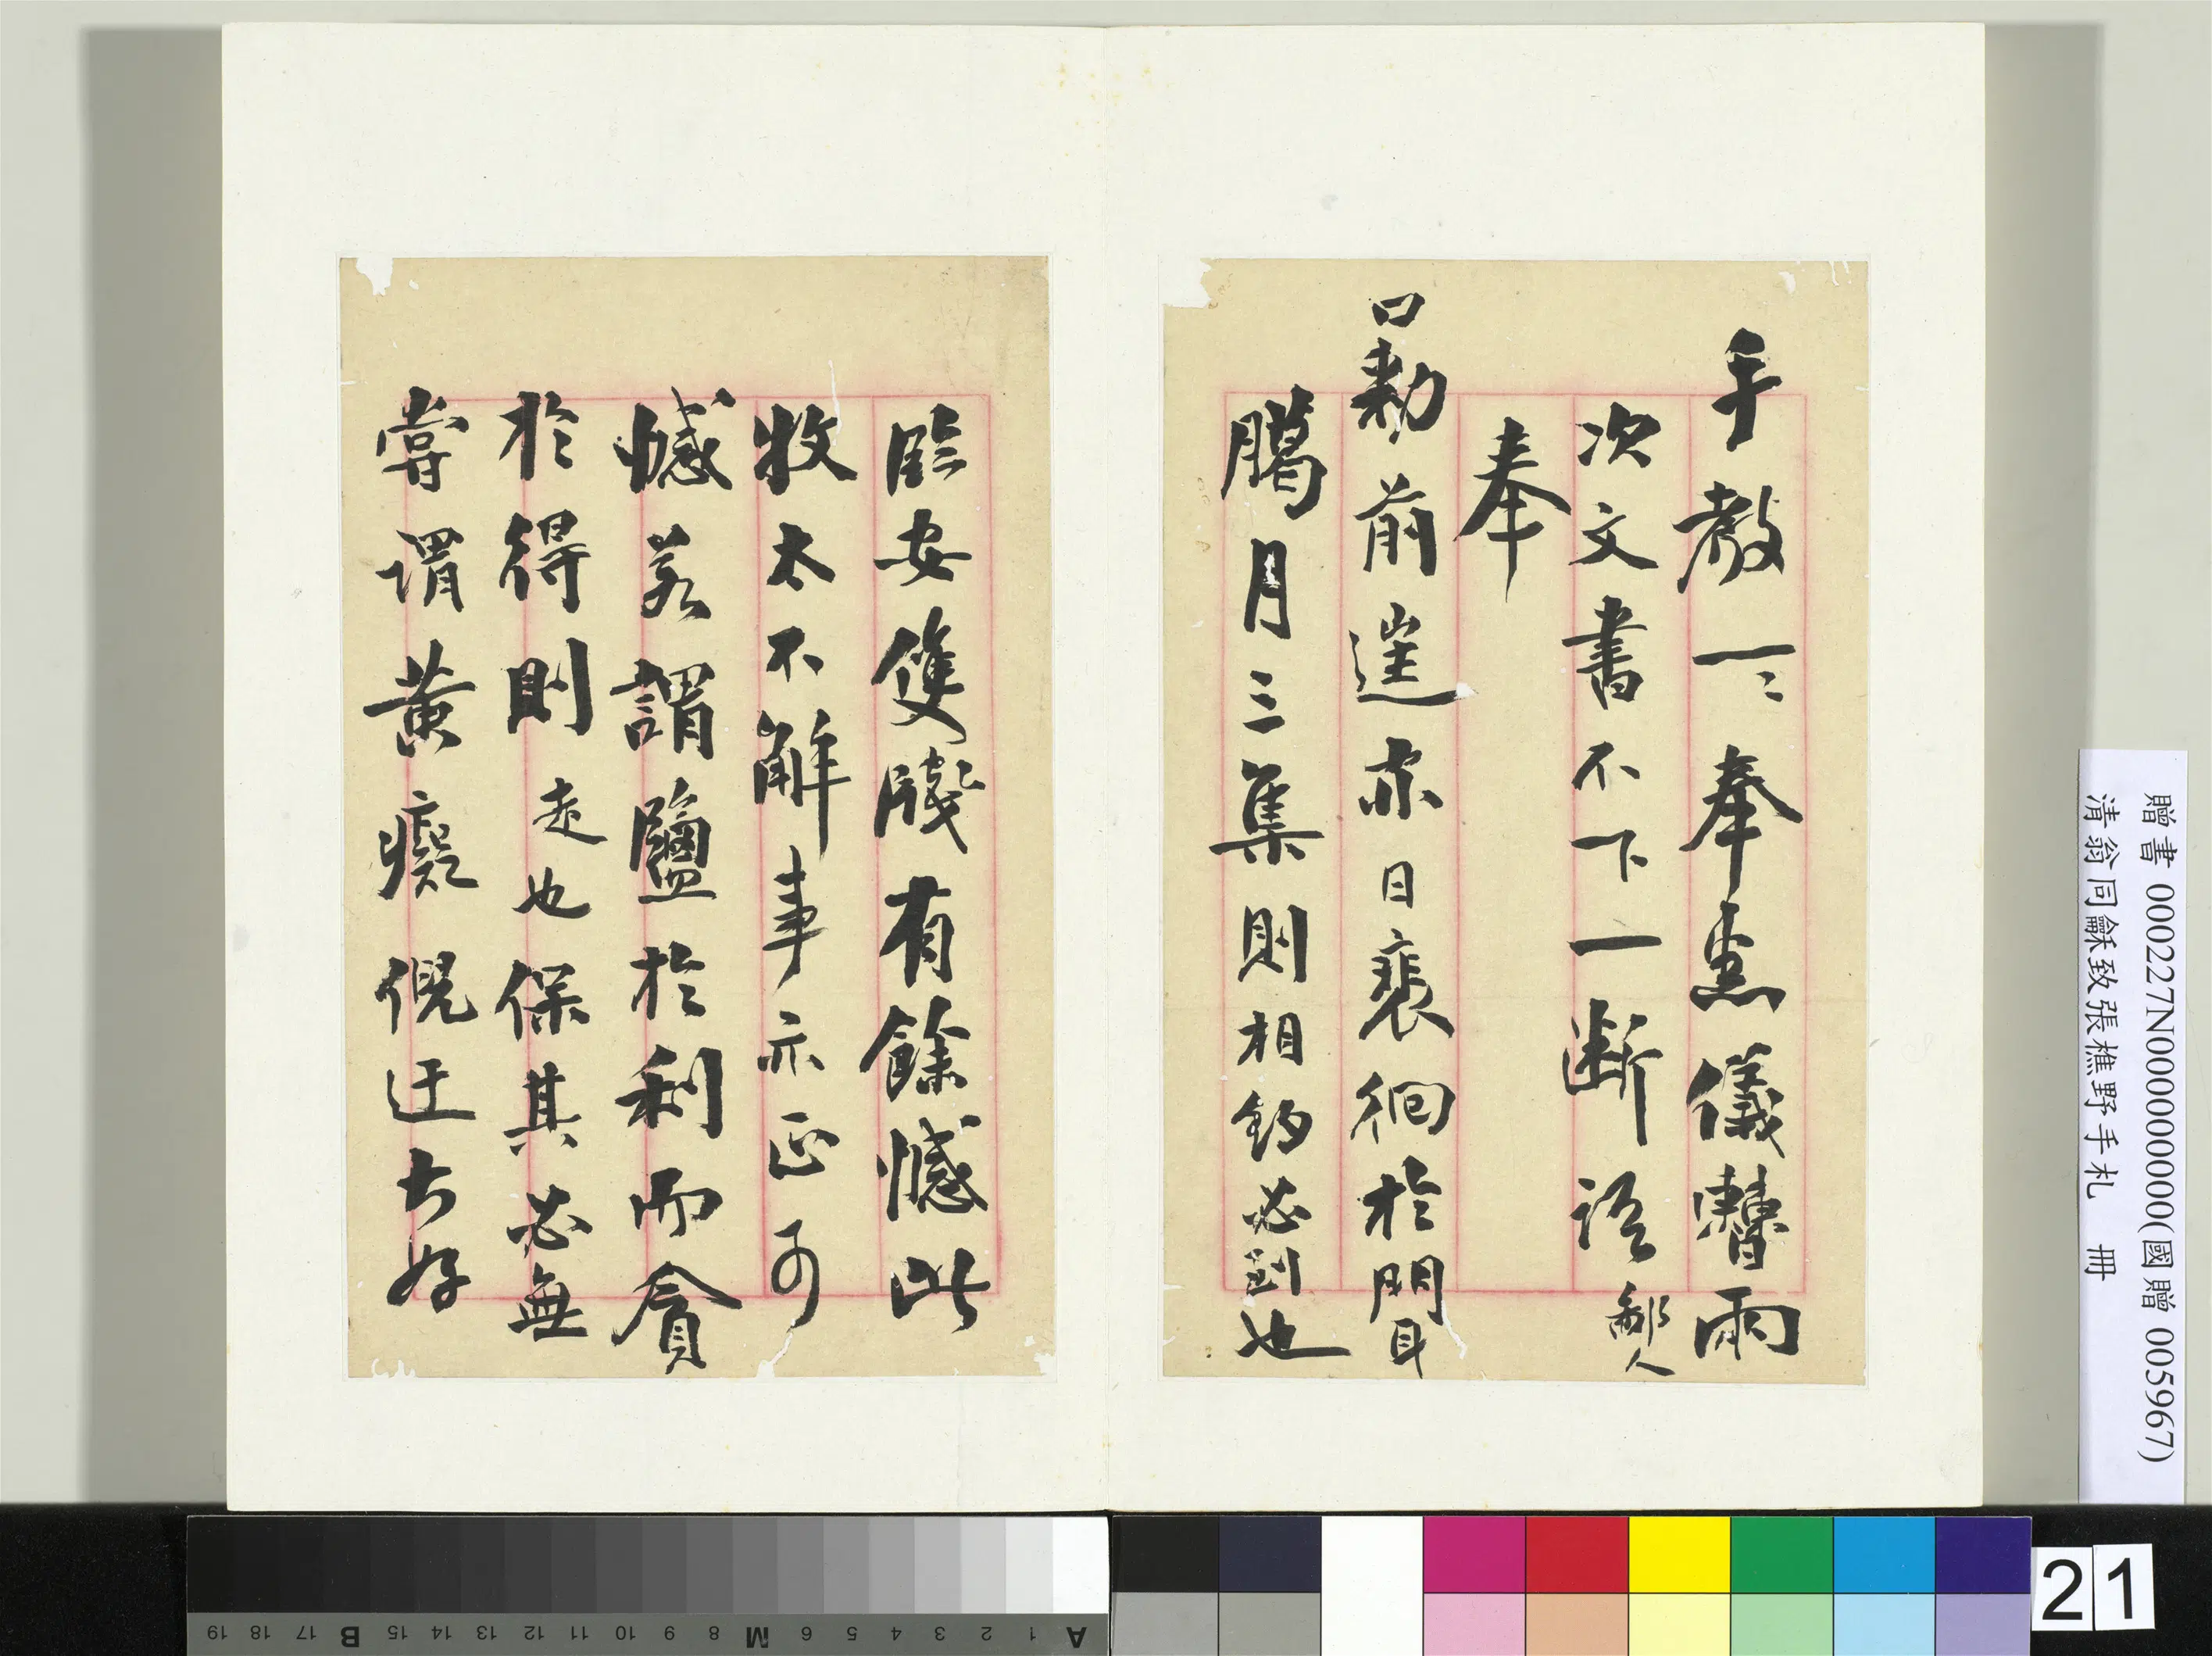 手教一〻奉悉儀朁雨
次文書不下一斷語鄙人
奉
口勑前進亦日裵徊於門耳
臈月三集則相約必到也
臨安雙牋有餘憾此
牧太不解事亦正可
憾若謂鹽於利而貪
於得則走也保其必無
嘗謂黃癡倪迂大好
贈書 000227N000000000(國贈 005967)
清翁同龢致張樵野手札 冊
21
A 1 2 3 4 5 6 M 8 9 10 11 12 13 14 15 B 17 18 19